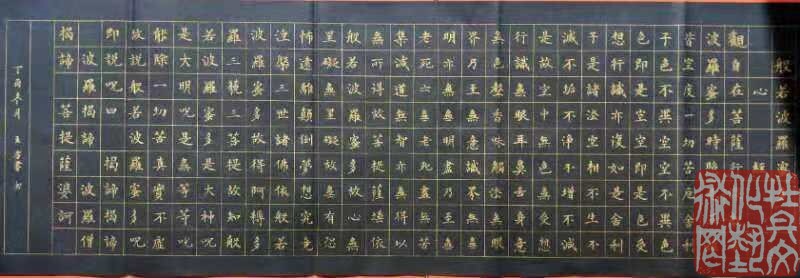 般若波羅蜜
心經
觀自在菩薩行
波羅蜜多時照見五
皆空度一切苦厄舍利
子色不異空空不異色
色即是空空即是色受
想行識亦復如是舍利
子是諸法空相不生不
滅不垢不淨不增不減
是故空中無色無受想
行識無眼耳鼻舌身意
無色聲香味觸法無眼
界乃至無意識界無無
明亦無無明盡乃至無
老死亦無老死盡無苦
集滅道無智亦無得以
無所得故菩提薩埵依
般若波羅蜜多故心無
罣礙無罣礙故無有恐
怖遠離顛倒夢想究竟
涅槃三世諸佛依般若
波羅蜜多故得阿耨多
羅藐三菩提故知般
若波羅蜜多是大神呪
是大明呪無等等呪
能除一切苦真實不虛
故說般若波羅蜜多呪
即說呪曰揭諦揭諦
波羅揭諦波羅僧
揭諦菩提薩婆訶
丁酉冬月